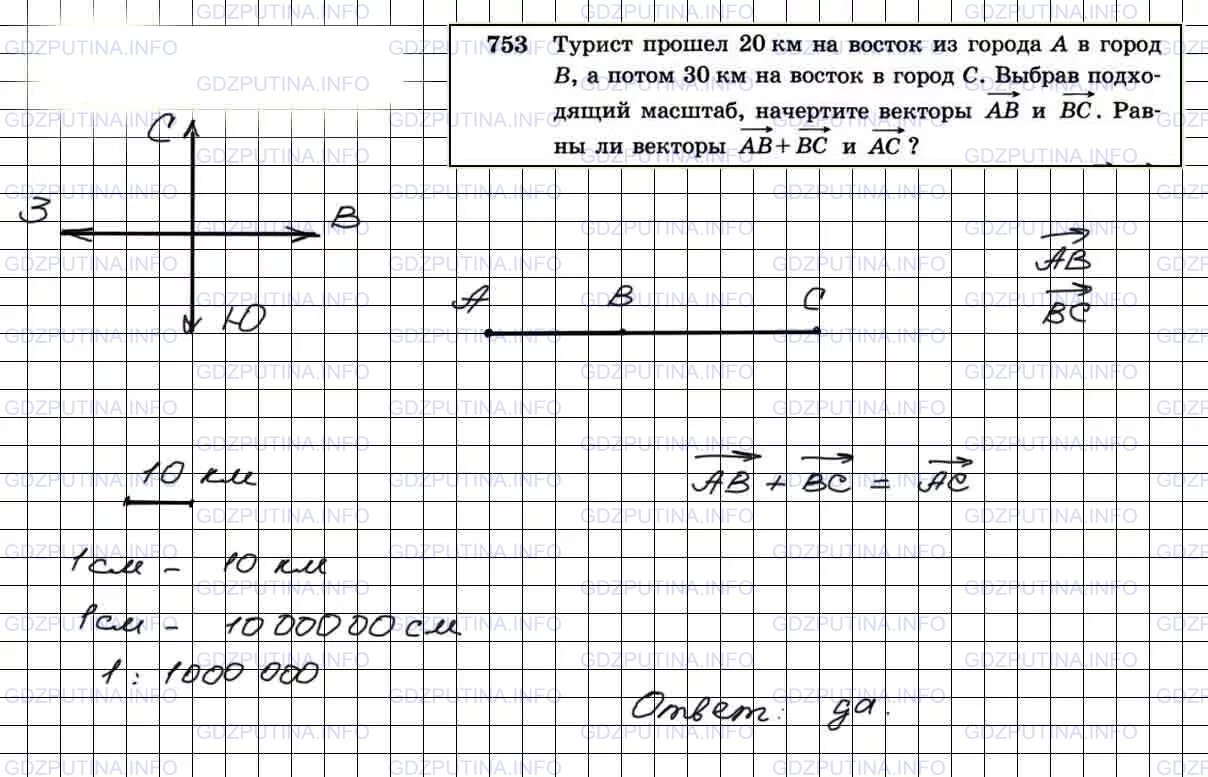 GDZPUTINA.INFO
753 Турист прошел 20 км на восток из города A в город
B, а потом 30 км на восток в город C. Выбрав подхо-
дящий масштаб, начертите векторы AB и BC. Рав-
ны ли векторы AB + BC и AC ?
С
З
В
Ю
A B C
AB
BC
10 км
AB + BC = AC
1 см - 10 км
1 см - 1000000 см
1 : 1000 000
Ответ: да.